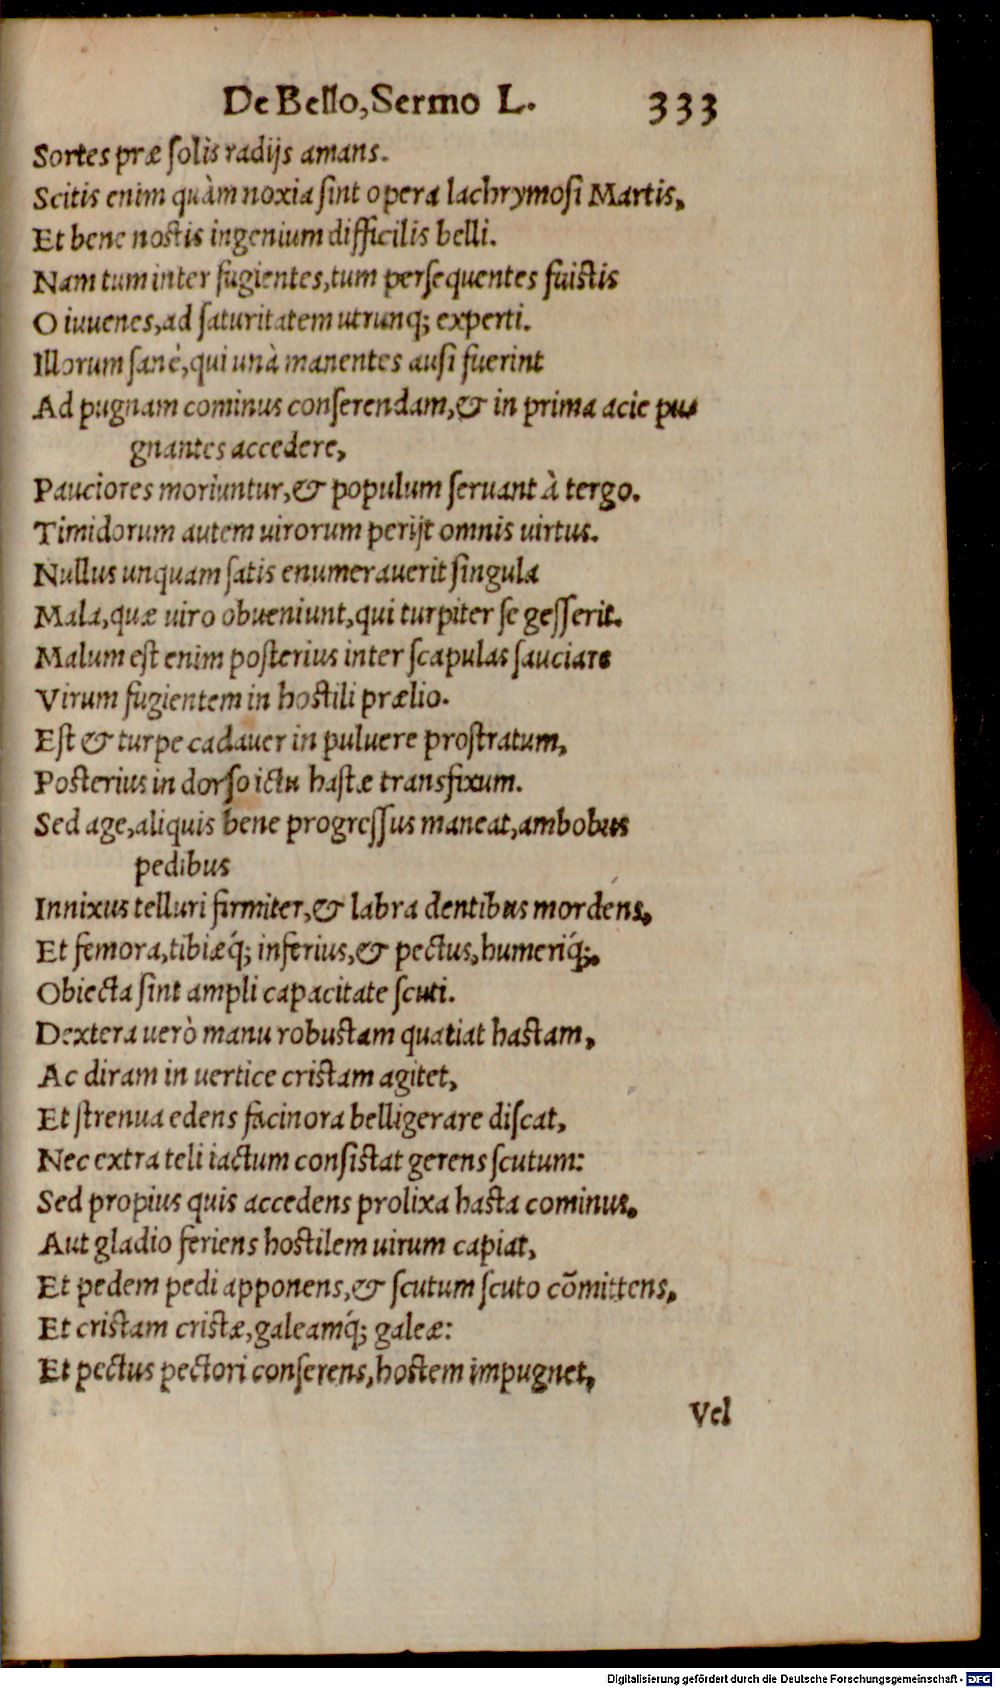 De Bello, Sermo L. 333
Sortes præ ſolis radijs amans.
Scitis enim quàm noxia ſint opera lachrymoſi Martis,
Et bene noſtis ingenium difficilis belli.
Nam tum inter fugientes, tum perſequentes fuiſtis
O iuuenes, ad ſaturitatem utrunq; experti.
Illorum ſanè, qui unà manentes auſi fuerint
Ad pugnam cominus conſerendam, & in prima acie pu
gnantes accedere,
Pauciores moriuntur, & populum ſeruant à tergo.
Timidorum autem uirorum perijt omnis uirtus.
Nullus unquam ſatis enumerauerit ſingula
Mala, quæ uiro obueniunt, qui turpiter ſe geſſerit.
Malum eſt enim poſterius inter ſcapulas ſauciare
Virum fugientem in hoſtili prælio.
Eſt & turpe cadauer in puluere proſtratum,
Poſterius in dorſo ictu haſtæ transfixum.
Sed age, aliquis bene progreſſus maneat, ambobus
pedibus
Innixus telluri firmiter, & labra dentibus mordens,
Et femora, tibiæq́; inferius, & pectus, humeriq́;.
Obiecta ſint ampli capacitate ſcuti.
Dextera uerò manu robuſtam quatiat haſtam,
Ac diram in uertice criſtam agitet,
Et ſtrenua edens facinora belligerare diſcat,
Nec extra teli iactum conſiſtat gerens ſcutum:
Sed propius quis accedens prolixa haſta cominus,
Aut gladio feriens hoſtilem uirum capiat,
Et pedem pedi apponens, & ſcutum ſcuto cõmittens,
Et criſtam criſtæ, galeamq́; galeæ:
Et pectus pectori conſerens, hoſtem impugnet,
Vel
Digitalisierung gefördert durch die Deutsche Forschungsgemeinschaft - DFG